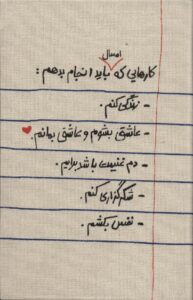 کارهایی که امسال باید انجام بدهم :
- زندگی کنم.
- عاشقی بشنوم و عاشقی بدانم.
- دم غنیمت باشد برایم.
- شکرگزاری کنم.
- نفس بکشم.